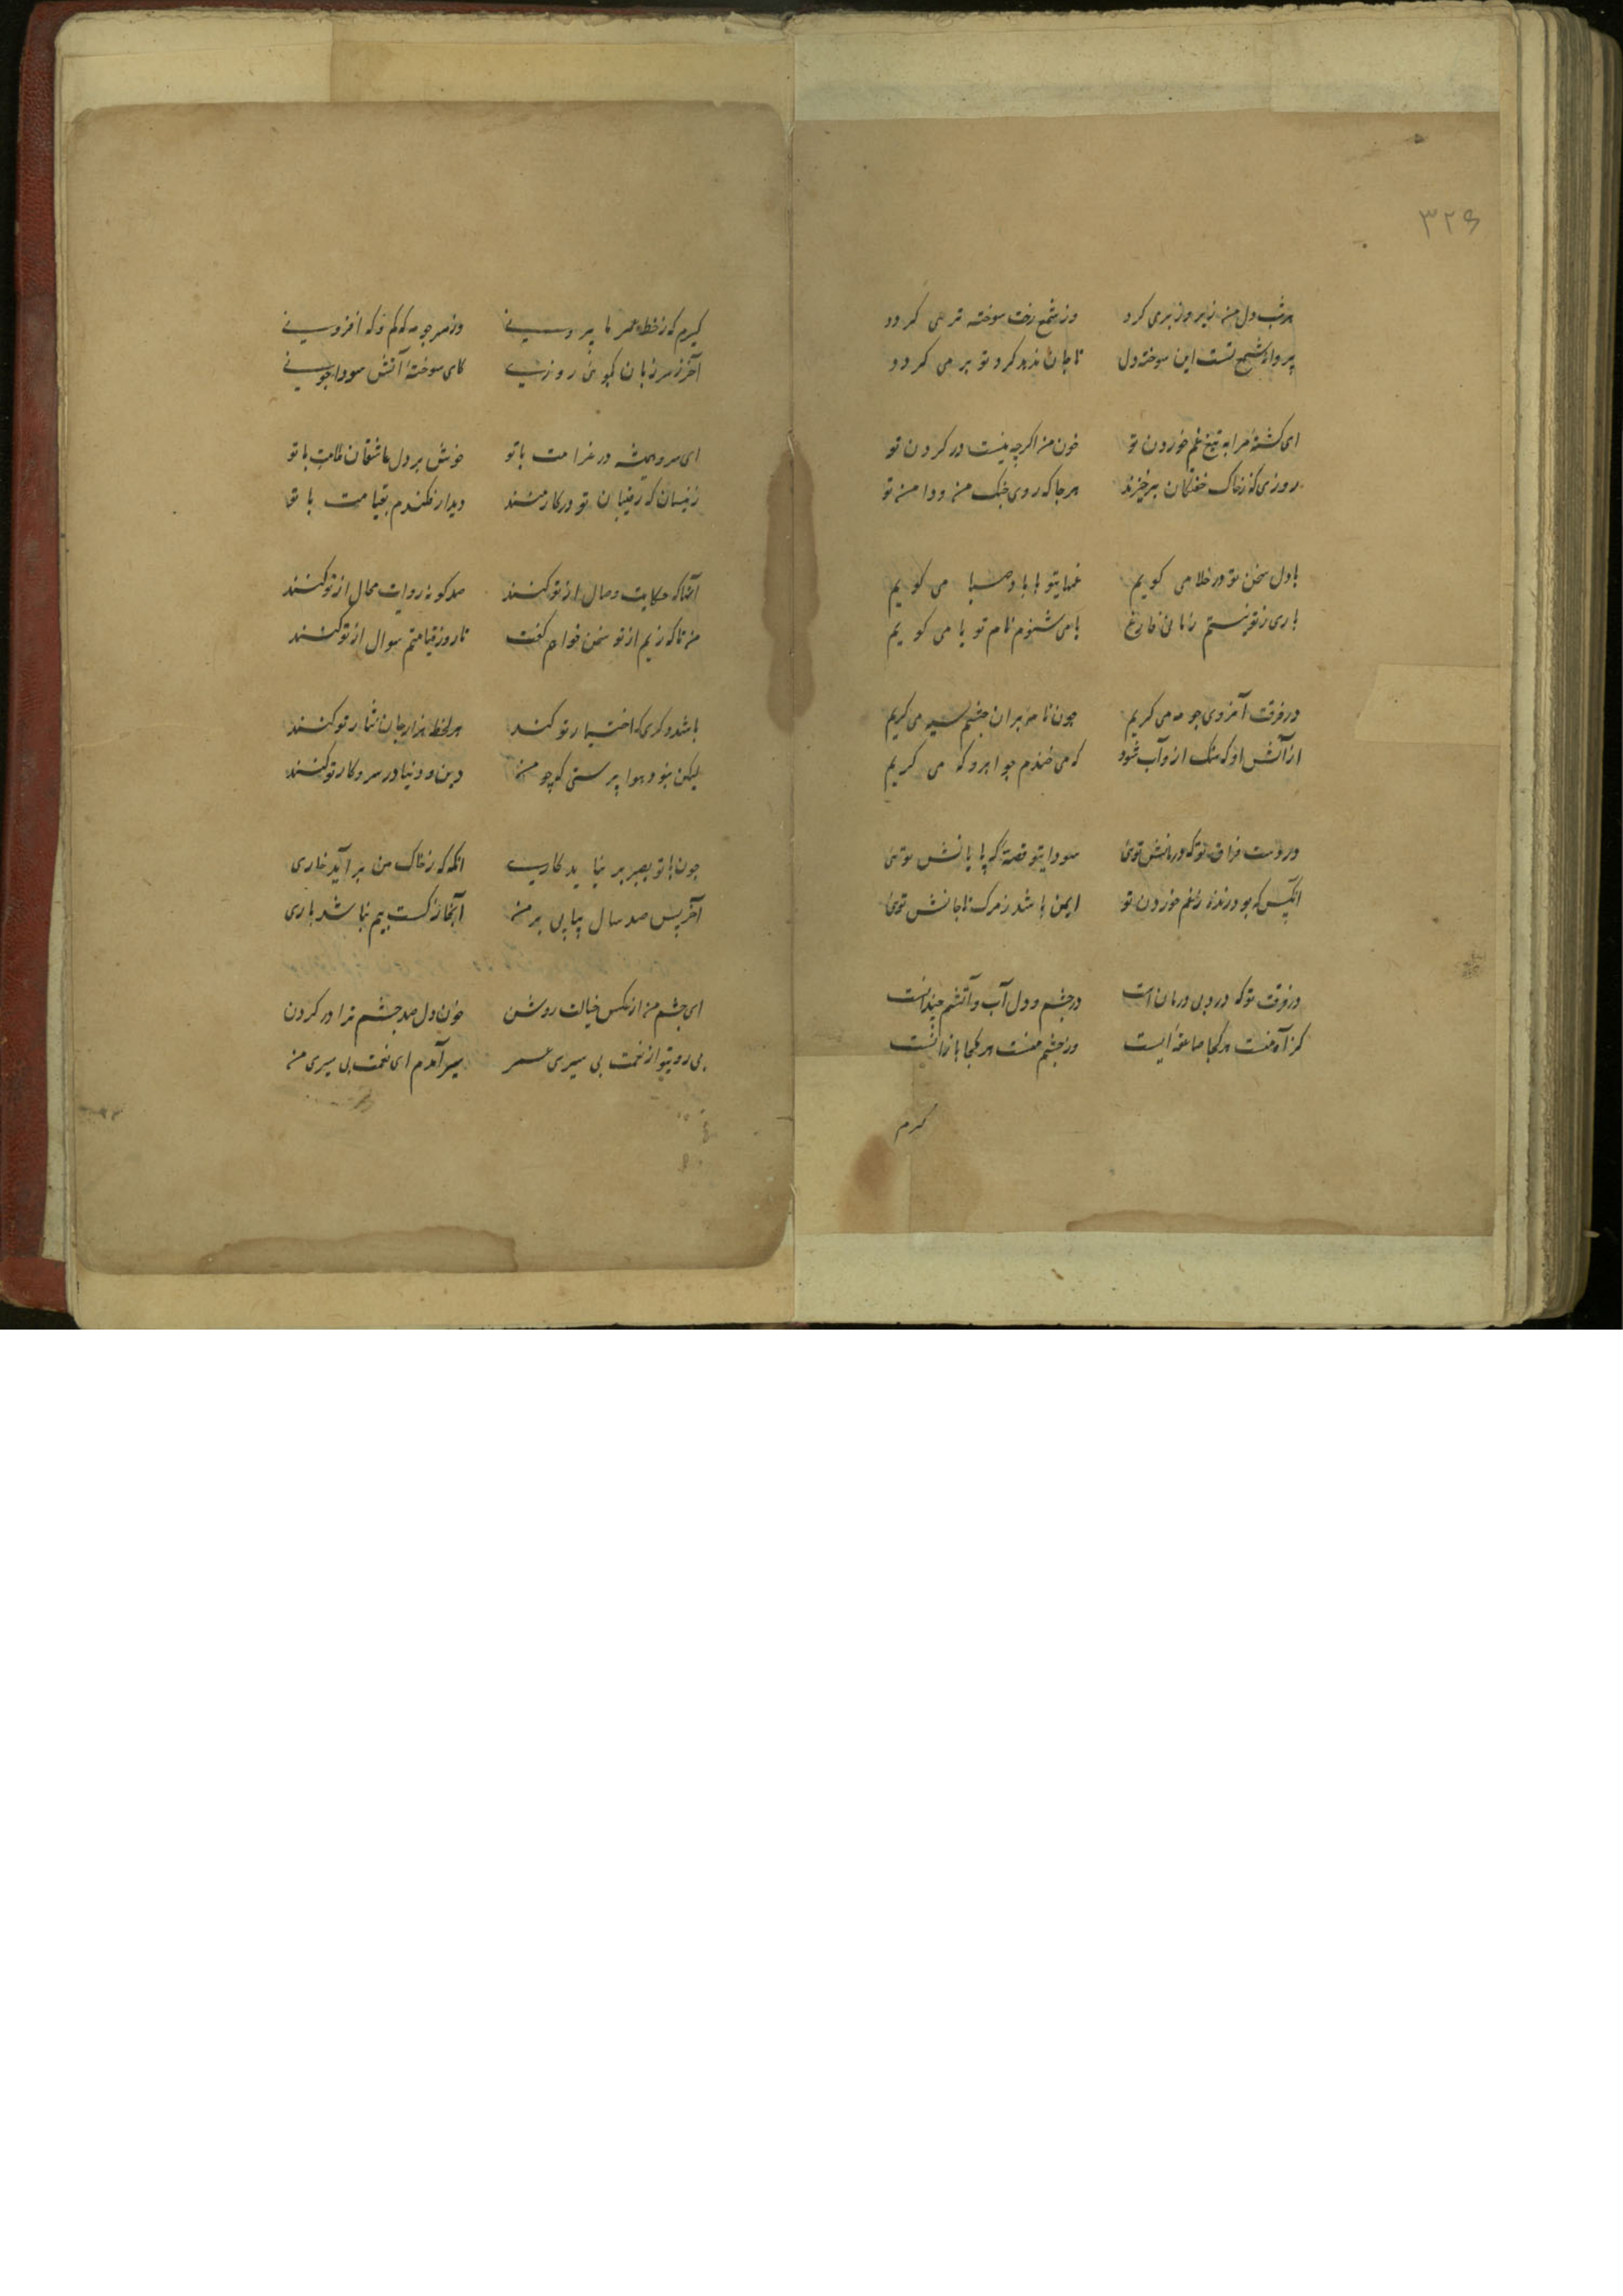 ۳۲۶
هر شب دل من زیر و زبر می کردد وز شمع رخت سوخته تر می کردد
پروانه شمع تست این سوخته دل تا جان ندهد کرد تو بر می کردد
ای کشته مرا به تیغ غم خوردن تو خون من اکرچه نیست در کردن تو
روزی که ز خاک خفتکان برخیزند هر جا که روی چنک من و دامن تو
با دل سخن تو در خلا می کویم غمهای تو با باد صبا می کویم
باری ز تو نیستم زمانی فارغ یا می شنوم نام تو یا می کویم
در فرقت آن روی چو مه می کریم چون نامه بران چشم سیه می کریم
از آتش او که سنک ازو آب شود که می خندم چو ابر و که می کریم
در دست فراق تو که درمانش توئی سودای تو قصه که پایانش توئی
آنکس که بود زنده ز غم خوردن تو ایمن باشد ز مرک تا جانش توئی
در فرقت تو که درد بی درمان است در چشم و دل آب و آتشم چندانست
کز آه منست هر کجا صاعقه ایست وز چشم منست هر کجا بارانست
کیرم
کیرم که ز خط عمر ما بیرونی وز مهر چو مه که کم و که افزونی
آخر ز سر زبان بکوئی روزی کای سوخته آتش سودا چونی
ای سرو همیشه در غرامت با تو خوش بر دل عاشقان ملامت با تو
زینسان که رقیبان تو در کار منند دیدار فکندم بقیامت با تو
آنها که حکایت وصال از تو کنند صد کونه روایت محال از تو کنند
من تا که زیم از تو سخن خواهم کفت تا روز قیامتم سوال از تو کنند
باشد دکری که اختیار تو کند هر لحظه هزار جان نثار تو کند
لیکن نبود هوا پرستی که چو من دین و دنیا در سر و کار تو کند
چون با تو بصبر بر نیاید کاری انکه که ز خاک من بر آید خاری
آخر پس صد سال بیابی بر من آنجا ز کست بیم نباشد باری
ای چشم من از عکس خیالت روشن خون دل صد چشم ترا در کردن
بی روی تو از غمت بی سیری عمر سیر آمدم ای نعمت بی سیری من